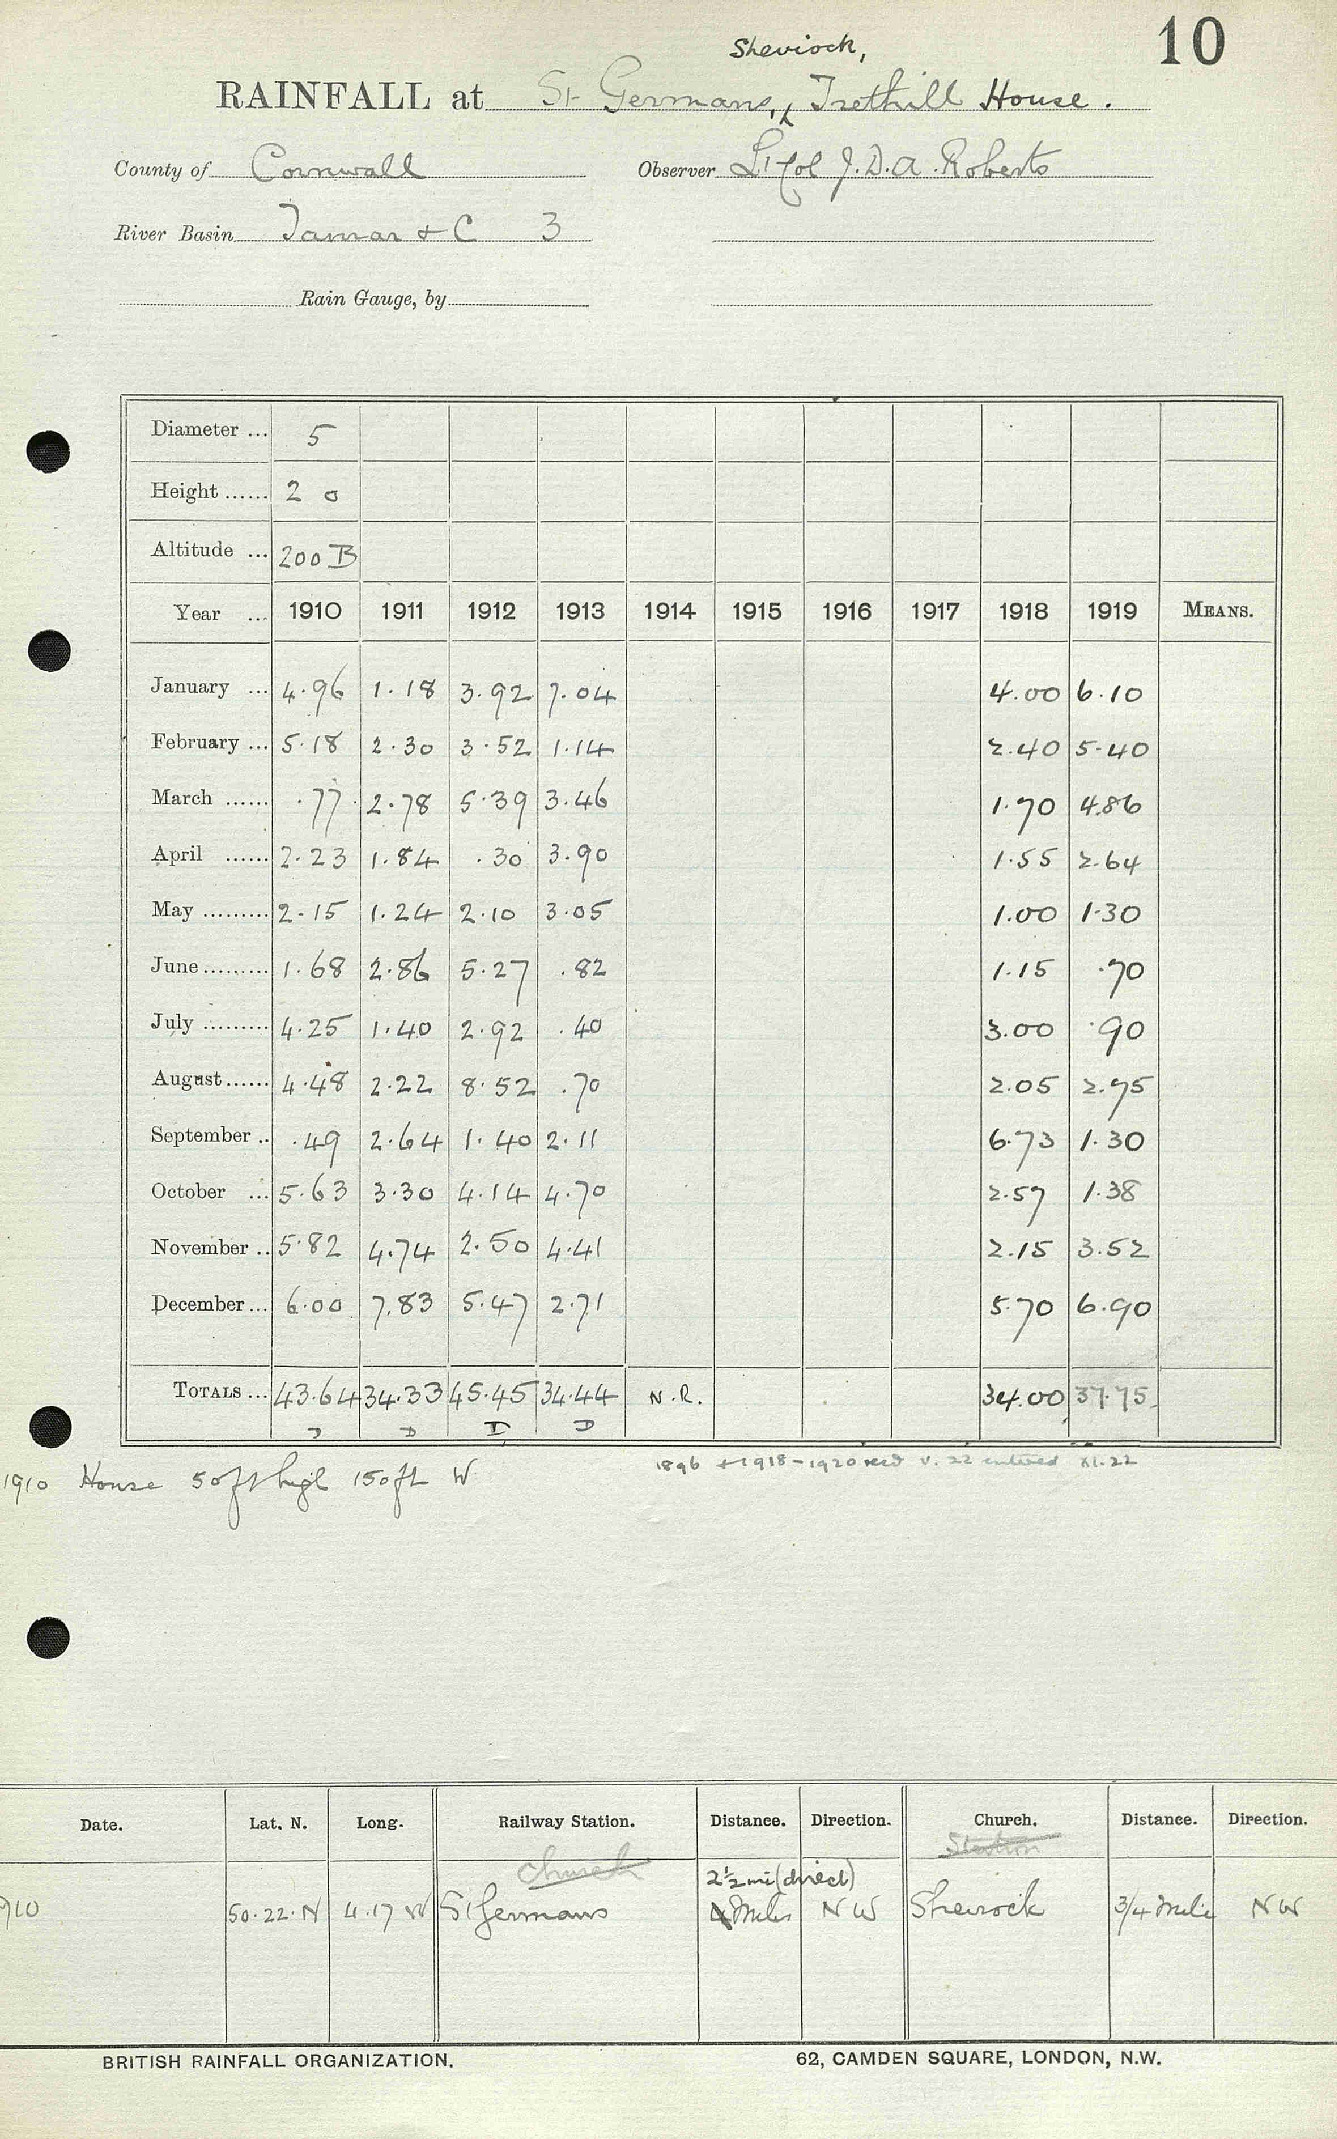 10
Sheviock,
RAINFALL at St Germans, Trethill House.
County of Cornwall Observer Lt Col J. D. A. Roberts
River Basin Tamar & C 3
Rain Gauge, by
Diameter ... 5
Height ...... 2 0
Altitude ... 200 B
Year ... 1910 1911 1912 1913 1914 1915 1916 1917 1918 1919 MEANS.
January ... 4.96 1.18 3.92 7.04 4.00 6.10
February ... 5.18 2.30 3.52 1.14 2.40 5.40
March ...... .77 2.78 5.39 3.46 1.70 4.86
April ...... 2.23 1.84 .30 3.90 1.55 2.64
May ......... 2.15 1.24 2.10 3.05 1.00 1.30
June ......... 1.68 2.86 5.27 .82 1.15 .70
July ......... 4.25 1.40 2.92 .40 3.00 .90
August ...... 4.48 2.22 8.52 .70 2.05 2.95
September .. .49 2.64 1.40 2.11 6.73 1.30
October ... 5.63 3.30 4.14 4.70 2.57 1.38
November .. 5.82 4.74 2.50 4.41 2.15 3.52
December ... 6.00 7.83 5.47 2.71 5.70 6.90
TOTALS ... 43.64 34.33 45.45 34.44 N.R. 34.00 37.75
D D D D
1896 + 1918-1920 recd v. 22 entered XI.22
1910 House 50ft high 150ft W
Date. Lat. N. Long. Railway Station. Distance. Direction. Church. Distance. Direction.
Church Station
2½ mi (direct)
910 50.22.N 4.17 W St Germans 4 Miles NW Sheviock 3/4 Mile NW
BRITISH RAINFALL ORGANIZATION. 62, CAMDEN SQUARE, LONDON, N.W.